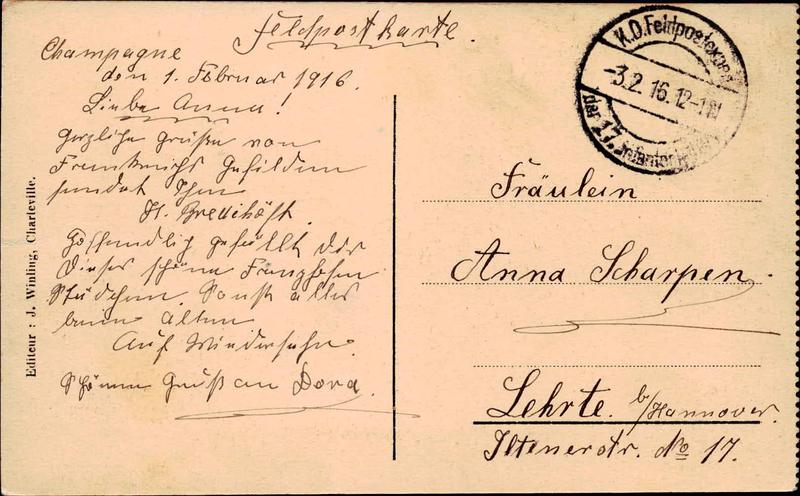 Feldpostkarte.
Champagne
den 1. Februar 1916.
Liebe Anna!
Herzliche Grüße von
Frankreichs Gefilden
sendet Ihnen
H.
Hoffendlich gefällt dir
dieses schöne Franzhösen
Städchen. Sonst alles
beim Alten
Auf Wiedersehn.
Schönen Gruß an Dora.
Editeur : J. Winling, Charleville.
K.D. Feldpostexped.
-3.2.16.12-1N
der 17. Infanterie
Fräulein
Anna Scharpen.
Lehrte. b/Hannover.
Iltenerstr. No 17.